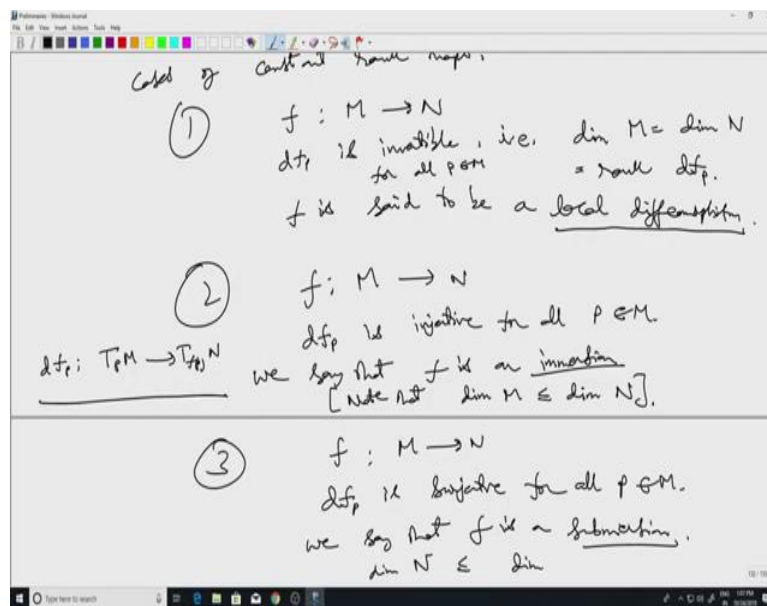 Preliminaries - Windows Journal
File Edit View Insert Actions Tools Help
Cases of constant rank maps.
① f : M → N
df_p is invertible, i.e. dim M = dim N
for all p ∈ M = rank df_p.
f is said to be a local diffeomorphism.
② f : M → N
df_p is injective for all p ∈ M.
df_p : T_pM → T_f(p)N we say that f is an immersion
[Note that dim M ≤ dim N].
③ f : M → N
df_p is surjective for all p ∈ M.
we say that f is a submersion.
dim N ≤ dim
Type here to search
1:07 PM